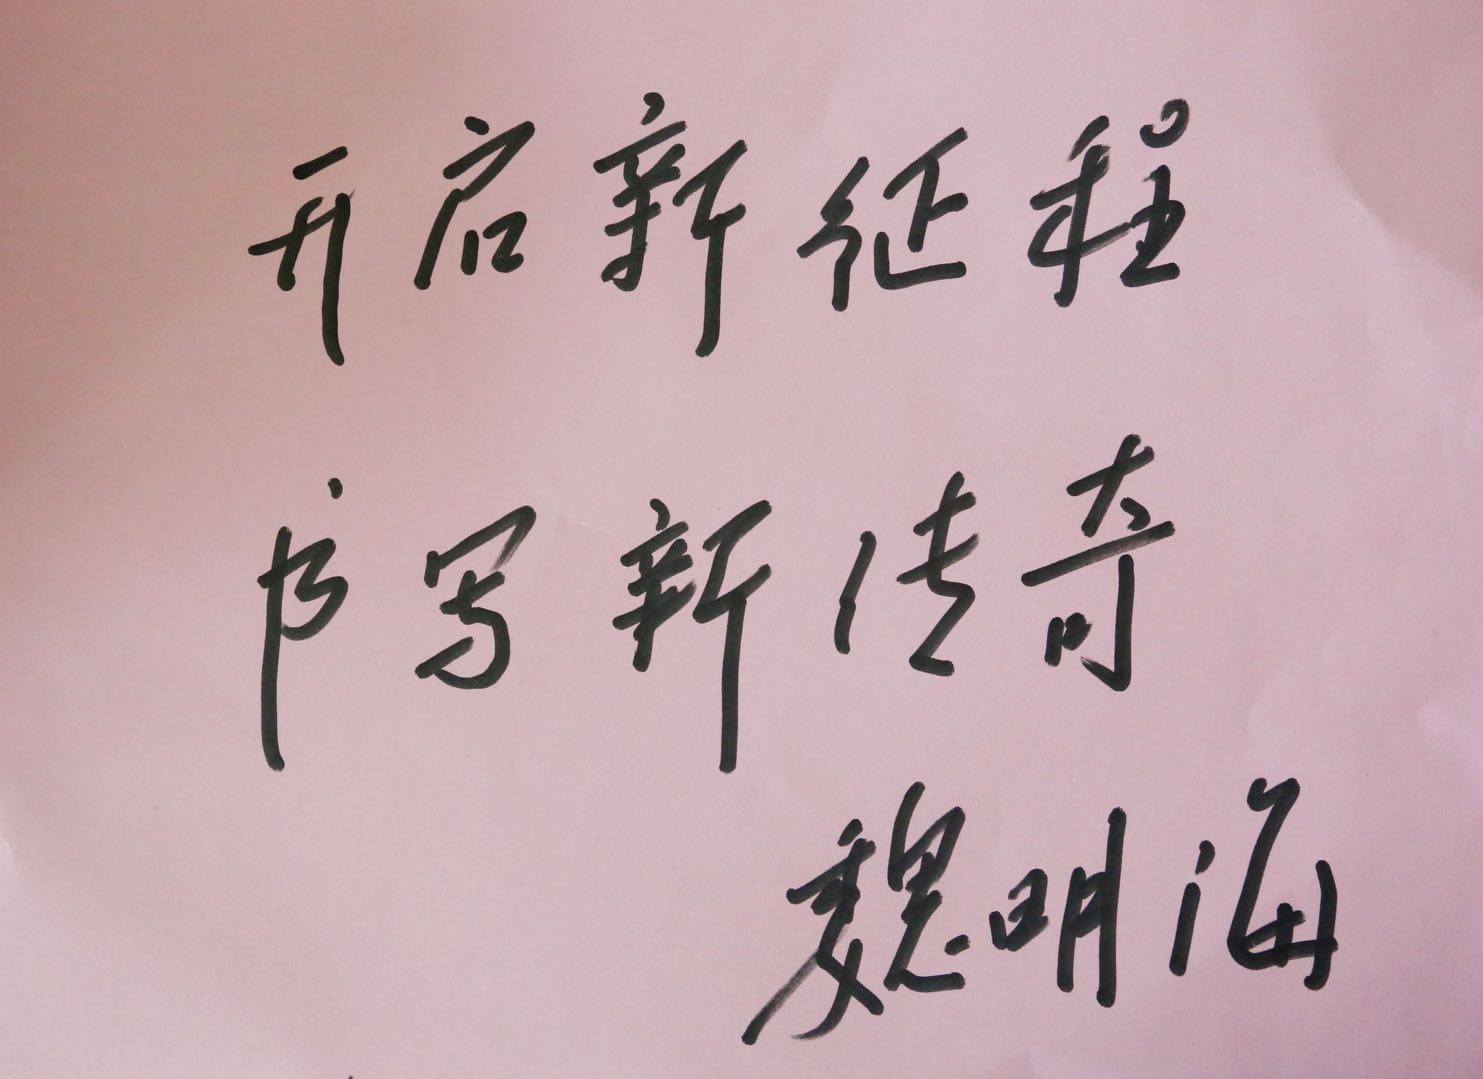 开启新征程
书写新传奇
魏明海